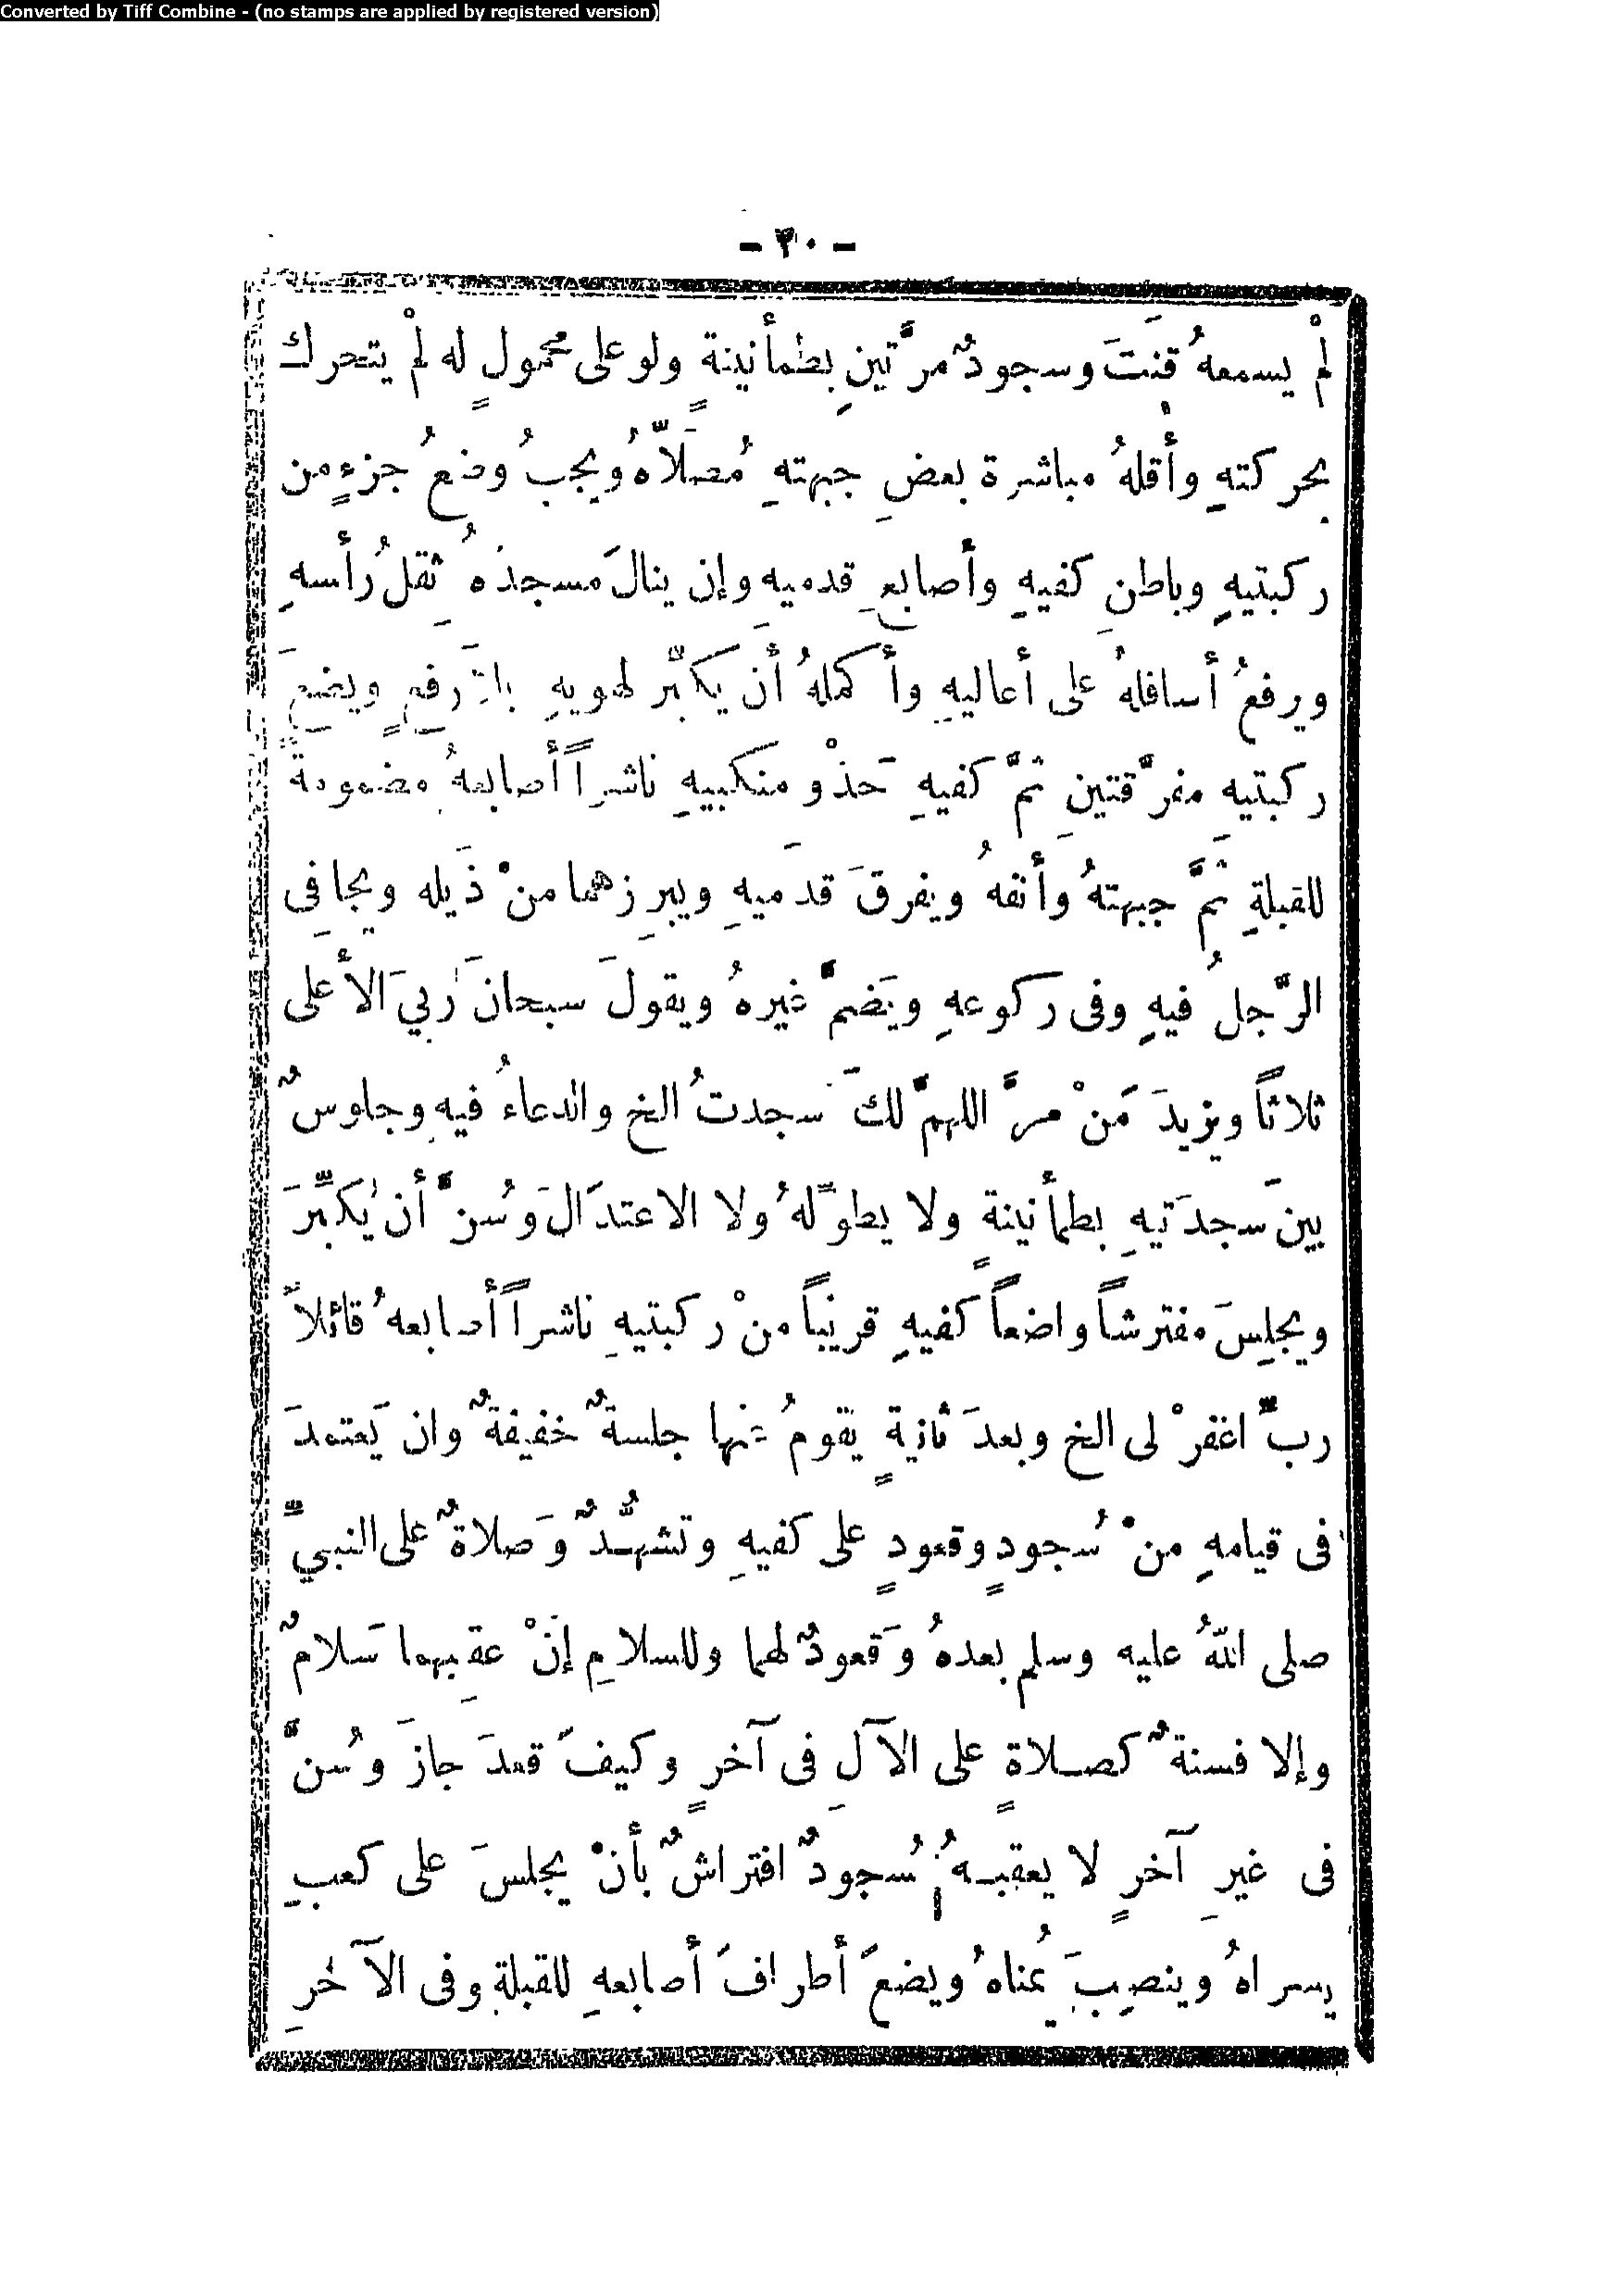 Converted by Tiff Combine - (no stamps are applied by registered version)
- ٣٠ -
لمْ يسمعهُ قنتَ وسجودٌ مرَّتينِ بطمأنينةٍ ولو على محمولٍ له لمْ يتحرك
بحركتهِ وأقلهُ مباشرة بعضِ جبهتهِ مُصلّاهُ ويجبُ وضعُ جزءٍ من
ركبتيهِ وباطنِ كفيهِ وأصابعِ قدميهِ وإن ينالَ مسجدَهُ ثقلُ رأسهِ
ورفعُ أسافلهُ على أعاليهِ وأكملهُ أنَ يكبّر لهويهِ بلا رفعٍ ويضعَ
ركبتيهِ مفرَّقتينِ ثمَّ كفيهِ حَذْو منكبيهِ ناشراً أصابعهُ مضمومةً
للقبلةِ ثمَّ جبهتهُ وأنفهُ ويفرقَ قدميهِ ويبرِزهما منْ ذَيله ويجافِى
الرَّجلُ فيهِ وفى ركوعهِ ويَضمَّ غيرهُ ويقولَ سبحانَ رَبيَ الأعلى
ثلاثاً ويزيدَ مَنْ مرَّ اللهمَّ لكَ سجدتُ الخ والدعاءُ فيهِ وجلوسٌ
بينَ سجدَتيهِ بطمأنينةٍ ولا يطوّلهُ ولا الاعتدَالَ وَسُنَّ أن يُكبِّرَ
ويجلِسَ مفترشاً واضعاً كفيهِ قريباً منْ ركبتيهِ ناشراً أصابعهُ قائلاً
ربّ اغفرْ لى الخ وبعدَ ثانيةٍ يقومُ عنها جلسةٌ خفيفةٌ وان يَعتمدَ
فى قيامهِ منْ سُجودٍ وقعودٍ على كفيهِ وتشهُّدٌ وَصلاةٌ على النبيِّ
صلى اللهُ عليه وسلم بعدهُ وَقعودٌ لهما وللسلامِ إنْ عقِبهما سَلامٌ
وإلا فسنةٌ كصلاةٍ على الآلِ فى آخرٍ وكيفَ قعدَ جازَ وسُنَّ
فى غيرِ آخرٍ لا يعقبهُ سُجودٌ افتراشٌ بأنْ يجلسَ على كعبِ
يسراهُ وينصِبَ يمناهُ ويضعَ أطرافَ أصابعهِ للقبلةِ وفى الآخرِ